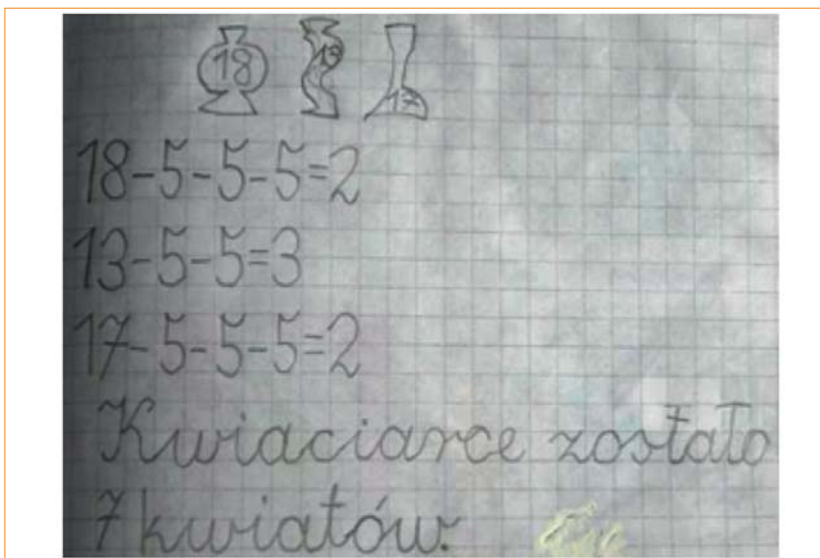 18 13 17
18-5-5-5=2
13-5-5=3
17-5-5-5=2
Kwiaciarce zostało
7 kwiatów.